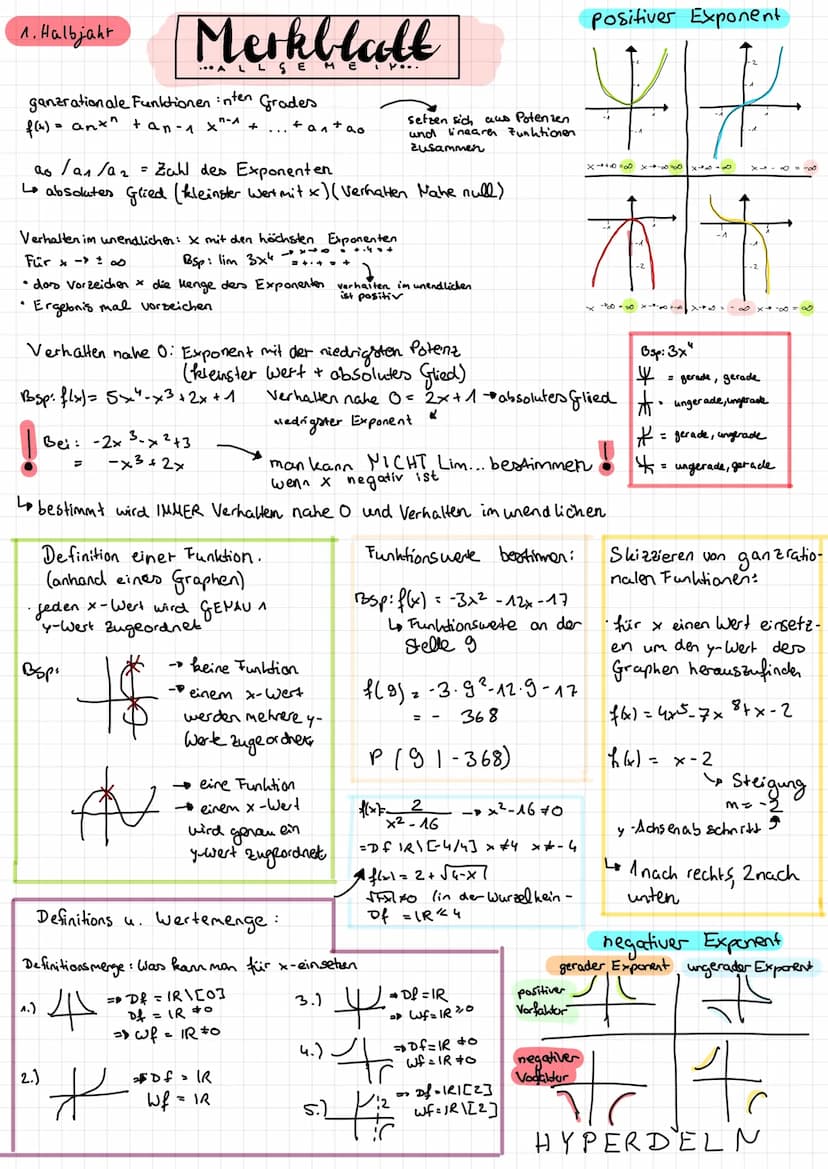 1. Halbjahr
Merkblatt
...ALLGEMEIN...
ganzrationale Funktionen: nten Grades
f(x) = anxⁿ + an-1 xⁿ⁻¹ + ... + a1 + a0
setzen sich aus Potenzen
und linearen Funktionen
zusammen
a0 / a1 / a2 = Zahl des Exponenten
↳ absolutes Glied (kleinster Wert mit x) (Verhalten Nahe null)
Verhalten im unendlichen: x mit den höchsten Exponenten
Für x → ± ∞ Bsp: lim 3x⁴
• das Vorzeichen × die Menge des Exponenten
• Ergebnis mal vorzeichen
verhalten im unendlichen
ist positiv
Verhalten nahe 0: Exponent mit der niedrigsten Potenz
(kleinster Wert + absolutes Glied)
Bsp: f(x) = 5x⁴-x³+2x+1 Verhalten nahe 0 = 2x+1 → absolutes Glied
niedrigster Exponent
! Bei: -2x³-x²+3
= -x³+2x
man kann NICHT Lim... bestimmen !
wenn x negativ ist
↳ bestimmt wird IMMER Verhalten nahe 0 und Verhalten im unendlichen
positiver Exponent
x→+∞=∞ x→-∞=∞ x→∞=∞ x→-∞=-∞
x→∞=-∞ x→-∞=∞
Bsp: 3x⁴
= gerade, gerade
= ungerade, ungerade
= gerade, ungerade
= ungerade, gerade
Definition einer Funktion.
(anhand eines Graphen)
· jeden x-Wert wird GENAU 1
y-Wert zugeordnet
Bsp:
→ keine Funktion
→ einem x-Wert
werden mehrere y-
Werte zugeordnet
→ eine Funktion
→ einem x-Wert
wird genau ein
y-Wert zugeordnet
Funktionswerte bestimmen:
Bsp: f(x) = -3x² -12x-17
↳ Funktionswerte an der
Stelle 9
f(9) = -3·9²-12·9-17
= - 368
P (9 | -368)
f(x)= 2/(x²-16) → x²-16≠0
=Df IR\[-4/4] x≠4 x≠-4
f(x) = 2+√4-x
(in der Wurzel kein -
Df = IR≤4
Skizzieren von ganzratio-
nalen Funktionen:
· für x einen Wert einsetz-
en um den y-Wert des
Graphen herauszufinden
f(x) = 4x⁵-7x⁸+x-2
h(x) = x-2
↳ Steigung
m = -2
y-Achsenabschnitt
↳ 1 nach rechts, 2 nach
unten
Definitions u. Wertemenge:
Definitionsmenge: Was kann man für x-einsetzen
1.) ⇒ Df = IR\[0]
Df = IR ≠0
⇒ Wf = IR ≠0
2.) ⇒ Df = IR
Wf = IR
3.) ⇒ Df = IR
⇒ Wf = IR≥0
4.) ⇒ Df = IR ≠0
Wf = IR ≠0
5.) ⇒ Df = IR\[2]
Wf = IR\[2]
negativer Exponent
gerader Exponent ungerader Exponent
positiver
Vorfaktor
negativer
Vorfaktor
HYPERBELN